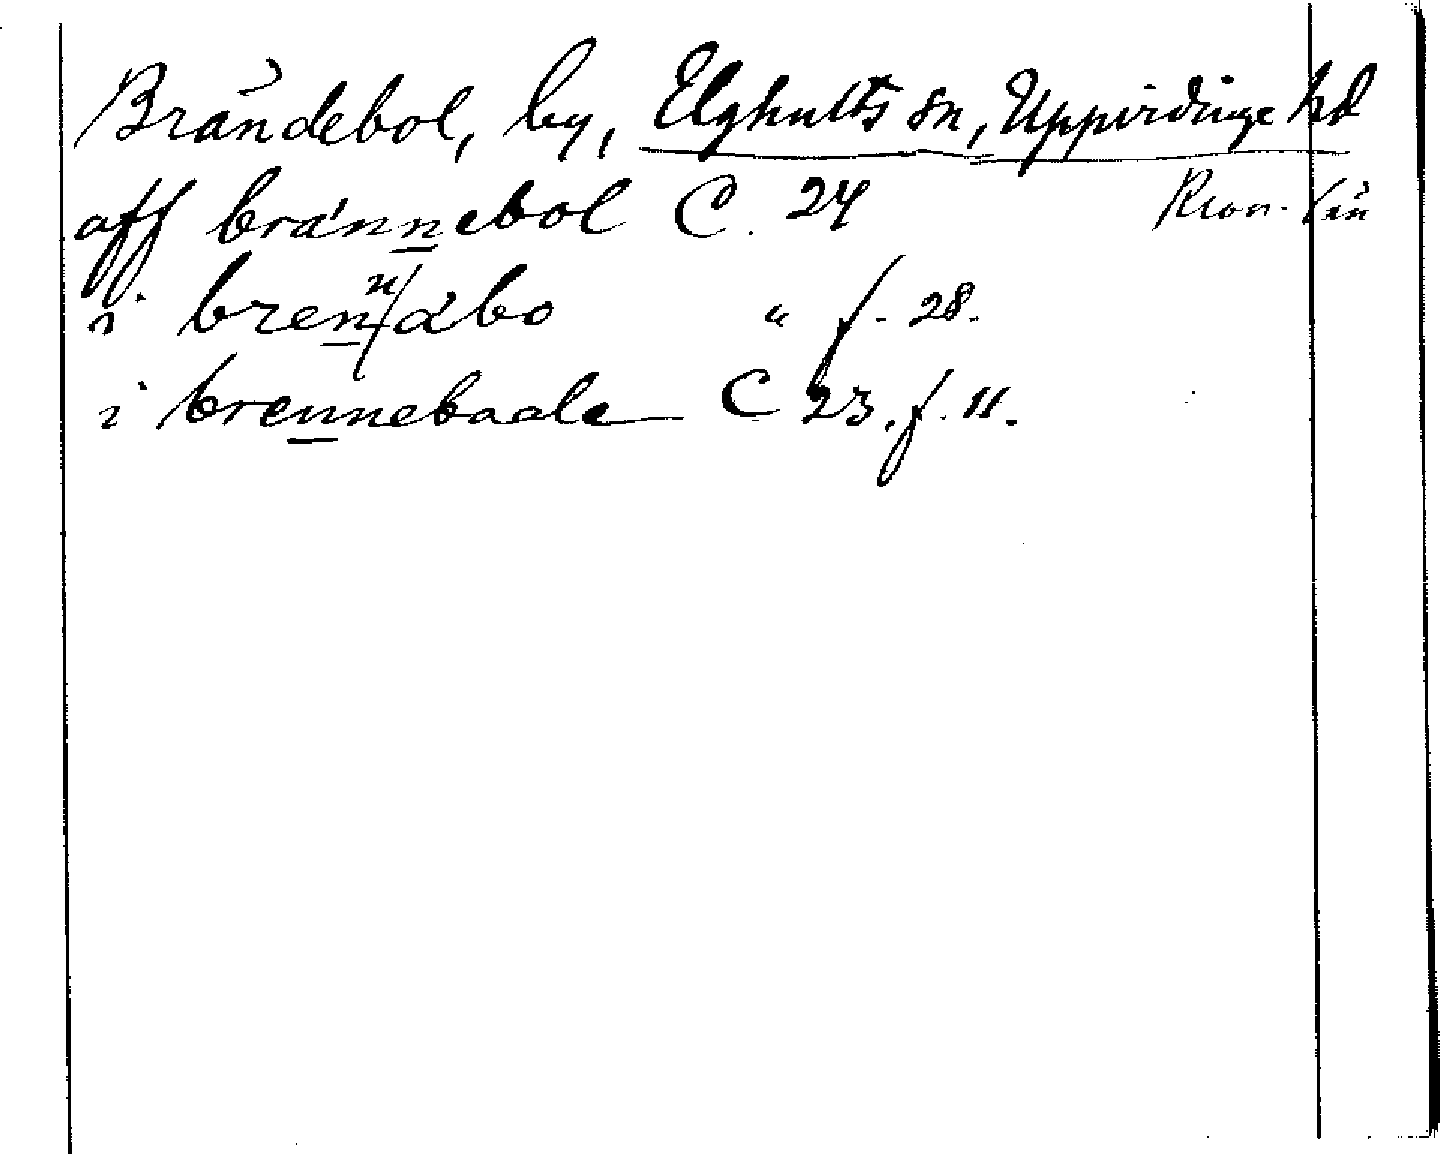 Brändebol, by, Elghults sn, Uppvidinge hd
Kron. län
aff brännebol C. 24
i brennäbo " f. 28.
i brennebaale C 23. f. 11.